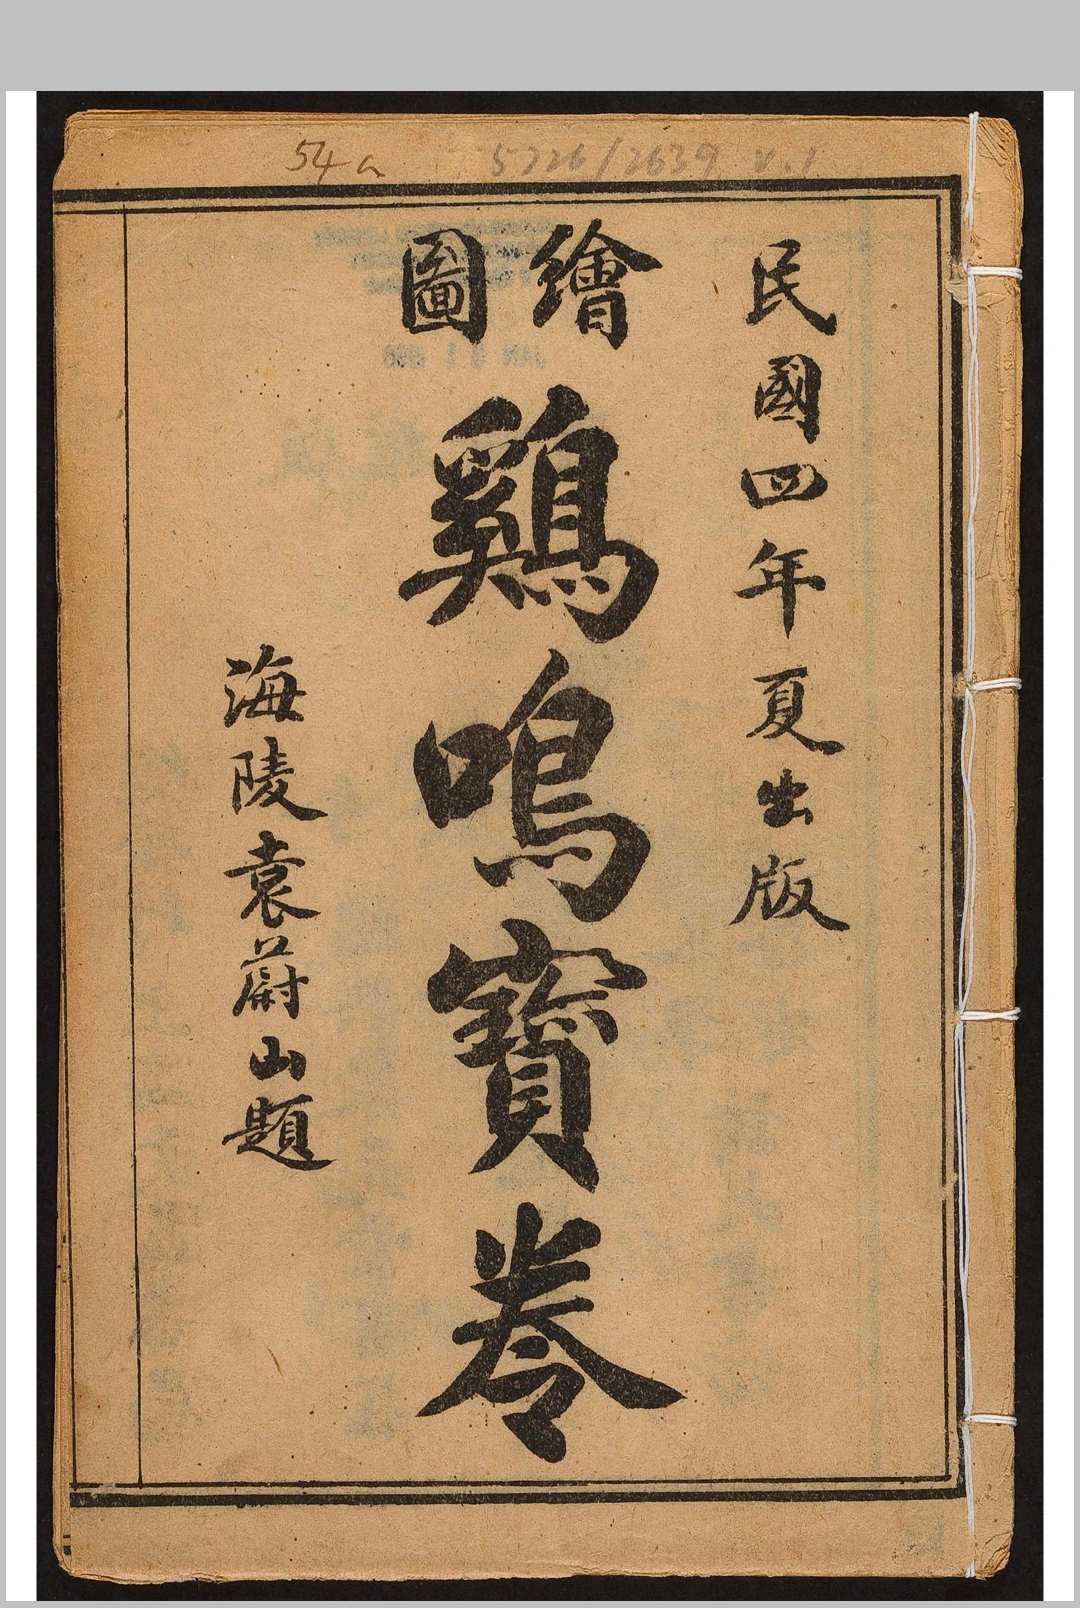 54a 5226/2639 v.1
民國四年夏出版
繪圖
鷄鳴寶卷
海陵袁蔚山題